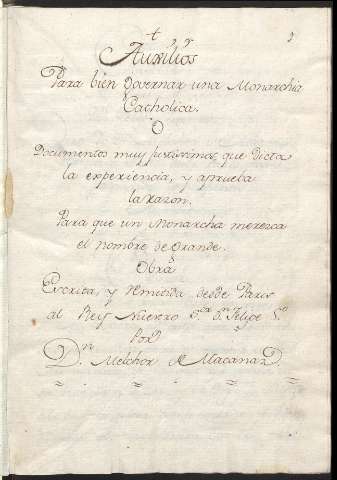 Auxilios
Para bien governar una Monarchia
Catholica.
O
Documentos muy justissimos, que dicta
la experiencia, y aprueba
la razon.
Para que un Monarcha merezca
el nombre de Grande.
Obra
Escrita, y remitida desde Paris
al Rey Nuestro S.or D.n Felipe 5.o
Por
D.n Melchor de Macanaz